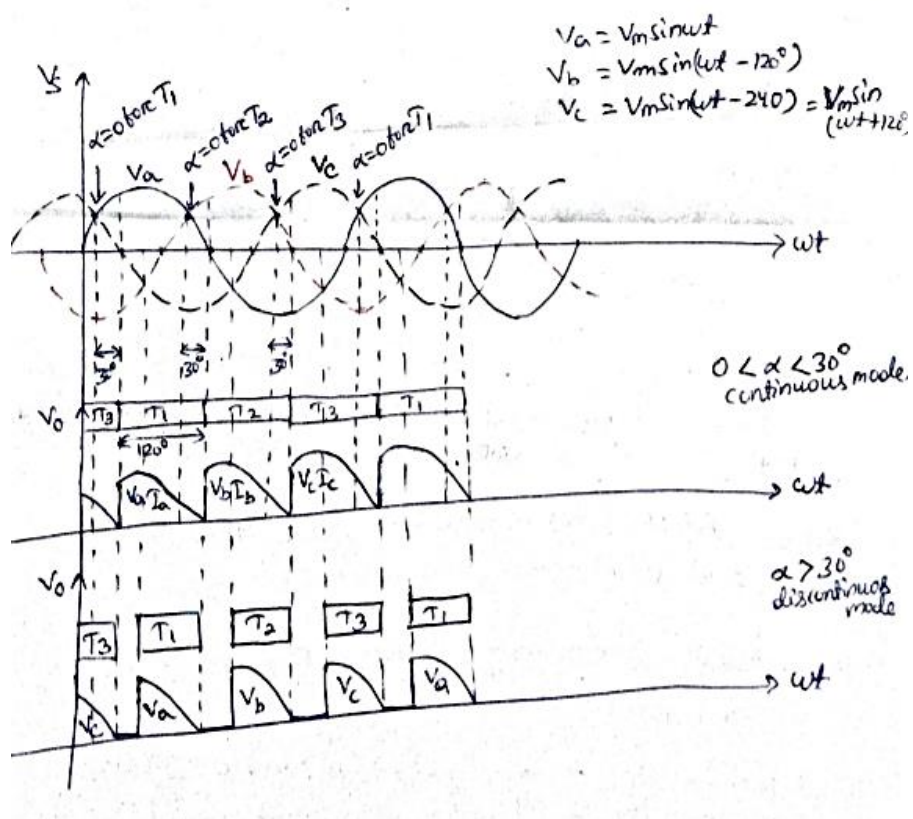 Va = Vm sinωt
Vb = Vm sin(ωt - 120°)
Vc = Vm sin(ωt - 240) = Vm sin
(ωt + 120°)
Vs
α=0 for T1
α=0 for T2
α=0 for T3
α=0 for T1
Va
Vb
Vc
ωt
30°
30°
30°
0 < α < 30°
continuous mode.
V0
T3
T1
T2
T3
T1
120°
Va Ia
Vb Ib
Vc Ic
ωt
α > 30°
discontinuos
mode
V0
T3
T1
T2
T3
T1
Vc
Va
Vb
Vc
Va
ωt